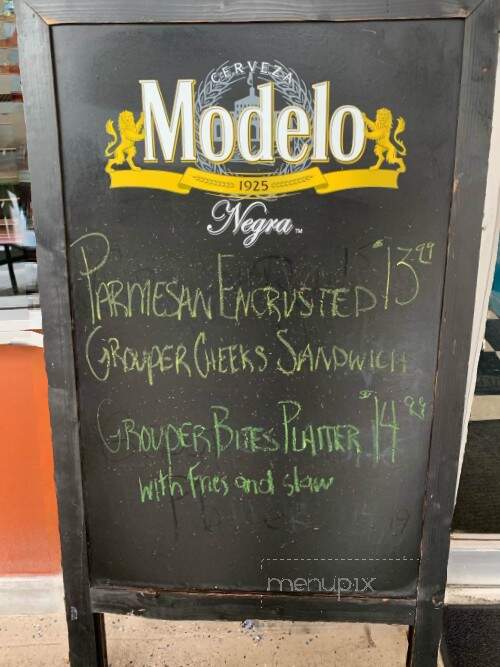 CERVEZA
Modelo
1925
Negra ™
PARMESAN ENCRUSTED $13.99
GROUPER CHEEKS SANDWICH
GROUPER BITES PLATTER $14.99
with fries and slaw
menupix